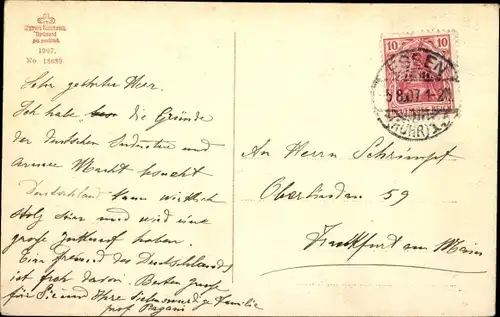 1907.
No. 18683
Sehr geehrter Herr.
Ich habe die Gründe
der Deutschen Industrie und
armee Macht besucht
Deutschland kann wirklich
stolz sein und wird eine
große Zukunft haben.
Ein Freund des Deutschlands
ist froh davon. Besten
für Sie und Ihre Familie
prof Pagani
10 10
ESSEN
5 8.07 1-2N
(RUHR) 1
An Herrn Schrimpf
Oberlinden 59
Frankfurt am Main